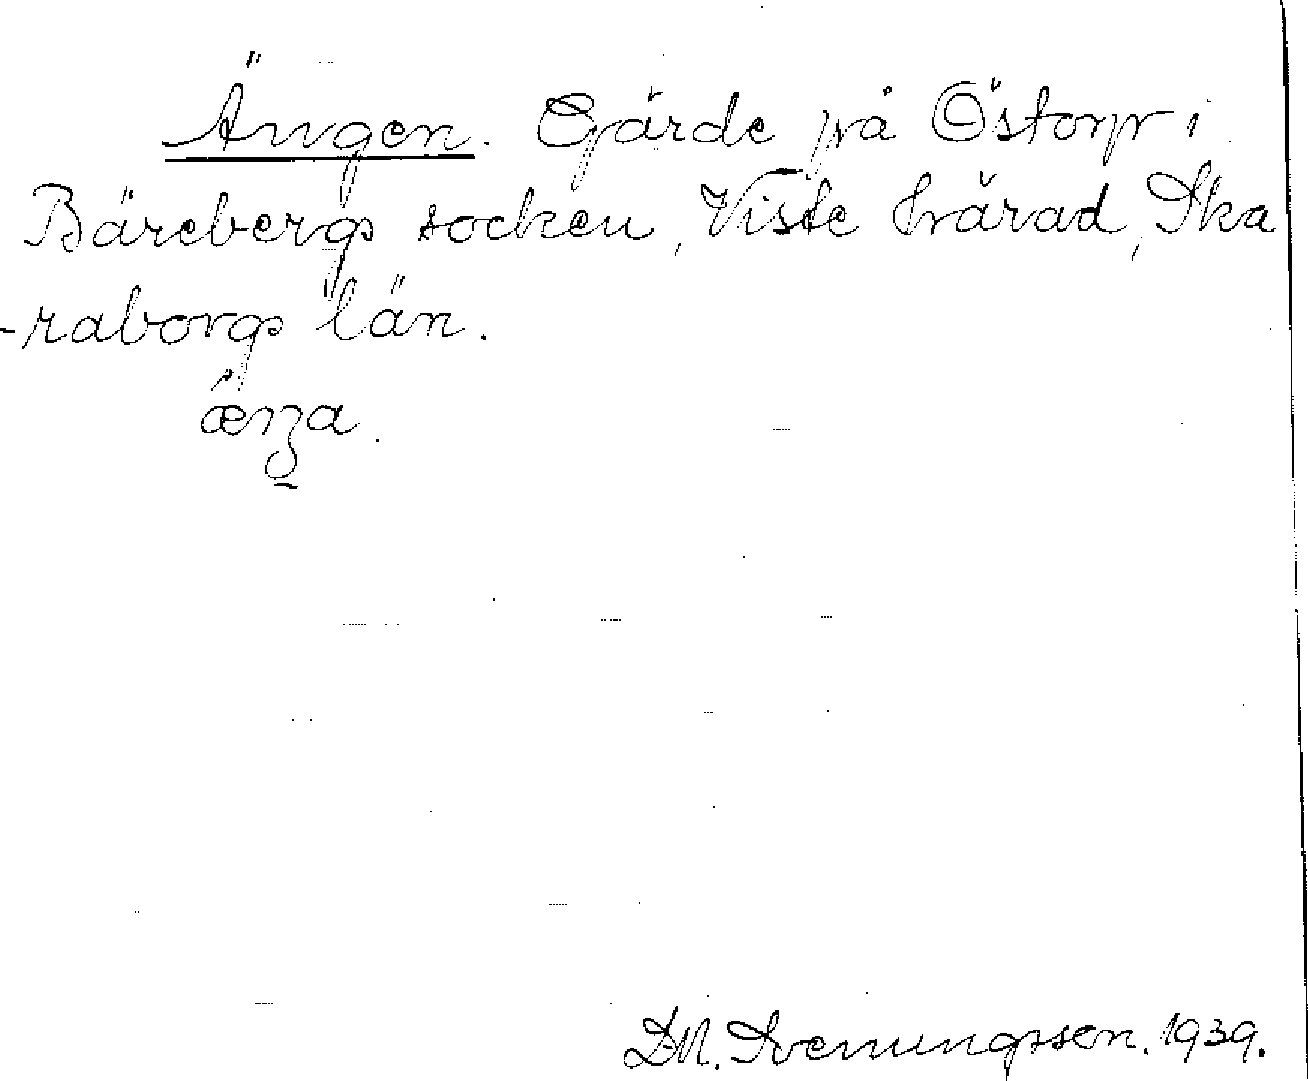 Ängen. Gjärde på Östorp i
Bärebergs socken, Viste härad, Ska
-raborgs län.
æŋa.
D.N. Svenungsson. 1939.